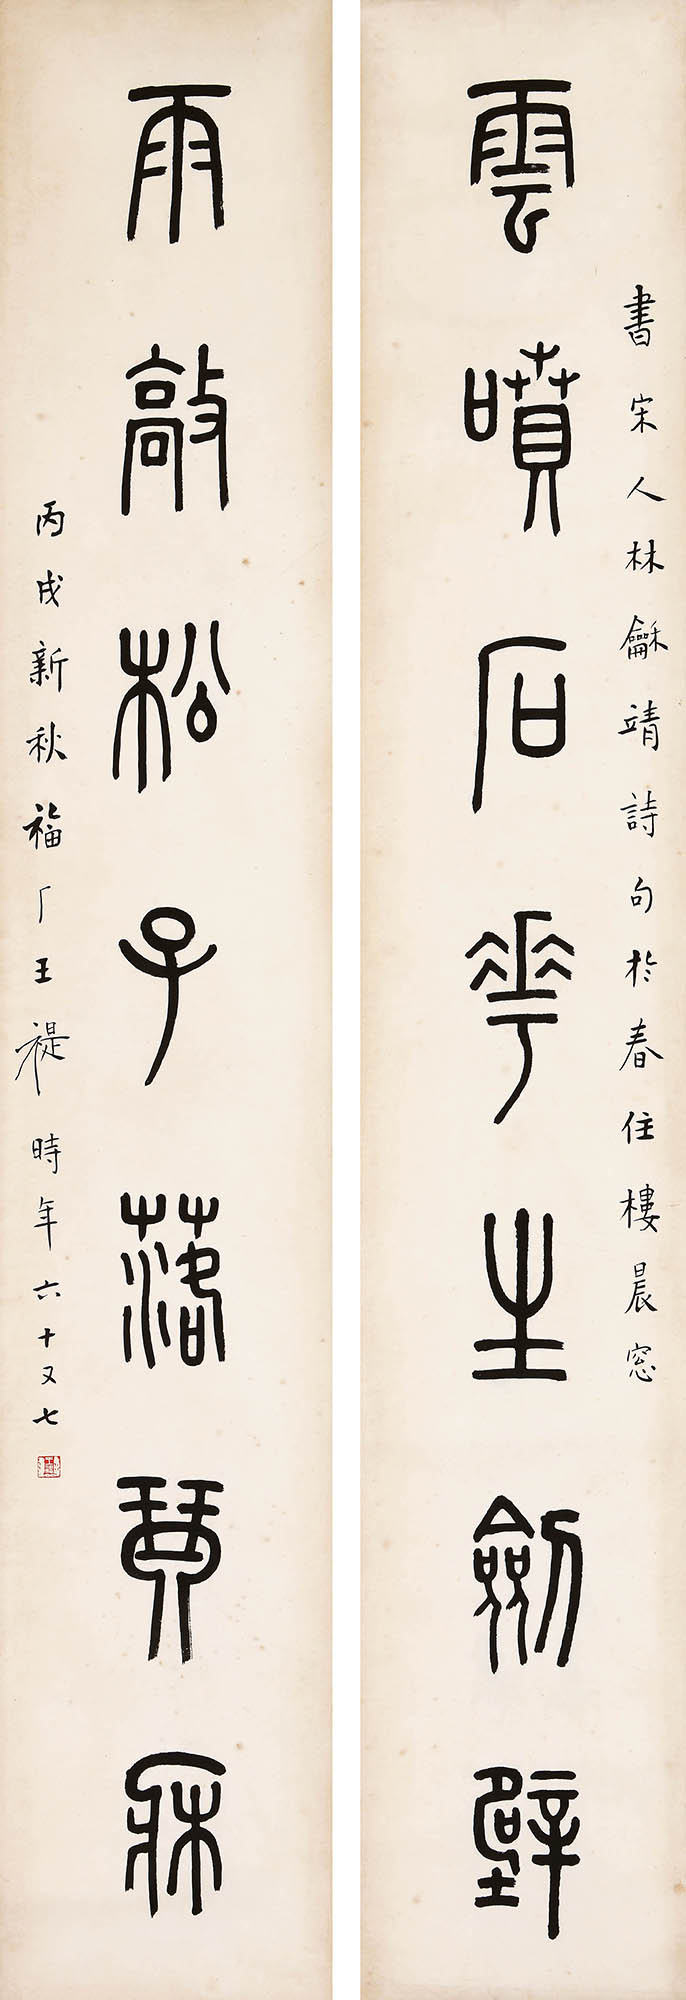 雲噴石花生劍壁
書宋人林龢靖詩句於春住樓晨窓
雨敲松子落琴牀
丙戌新秋福厂王禔時年六十又七